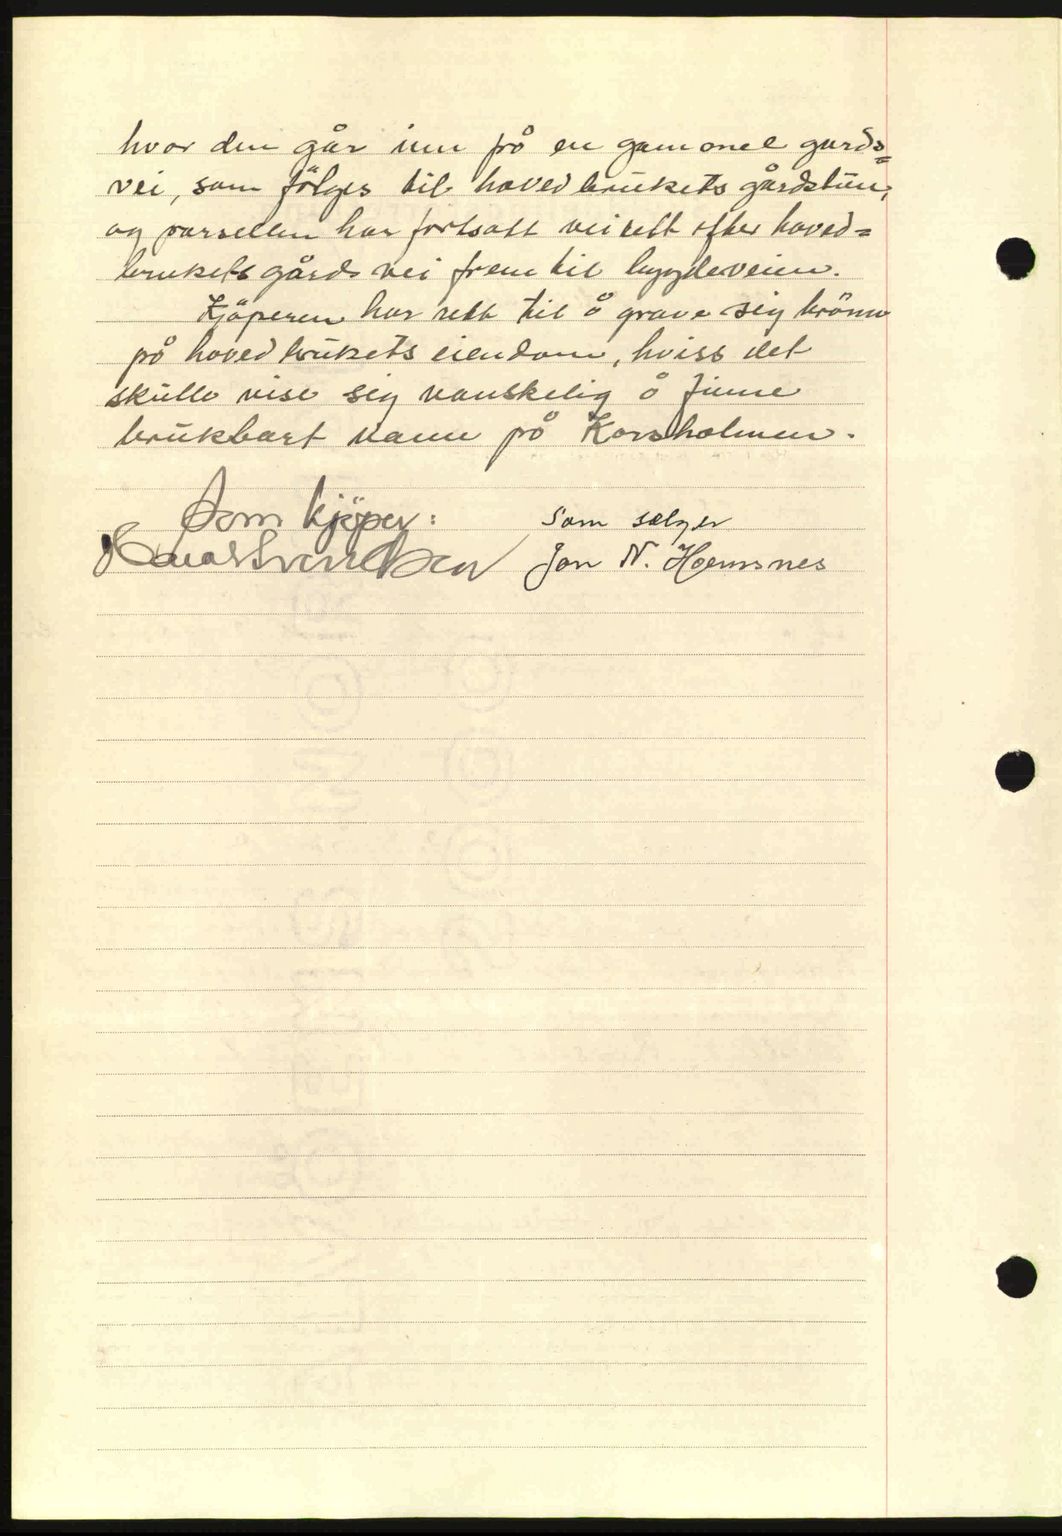 hvor den går inn på en gammel gards=
vei, som følges til hovedbrukets gårdstun,
og parsellen har fortsatt veirett efter hoved=
brukets gårdsvei frem til bygdeveien.
Kjöperen har rett til å grave sig brönn
på hovedbrukets eiendom, hviss det
skulle vise sig vanskelig å finne
brukbart vann på Korsholmen.
Som kjöper: Som selger
Jon N. Hoemsnes